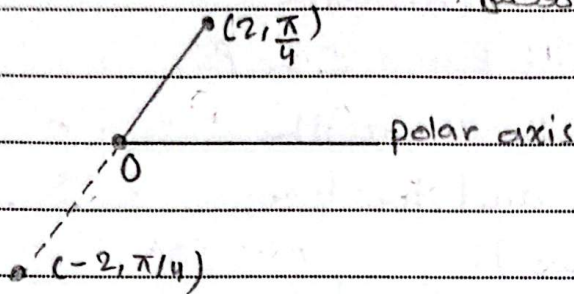 (2, π/4)
polar axis
O
(-2, π/4)